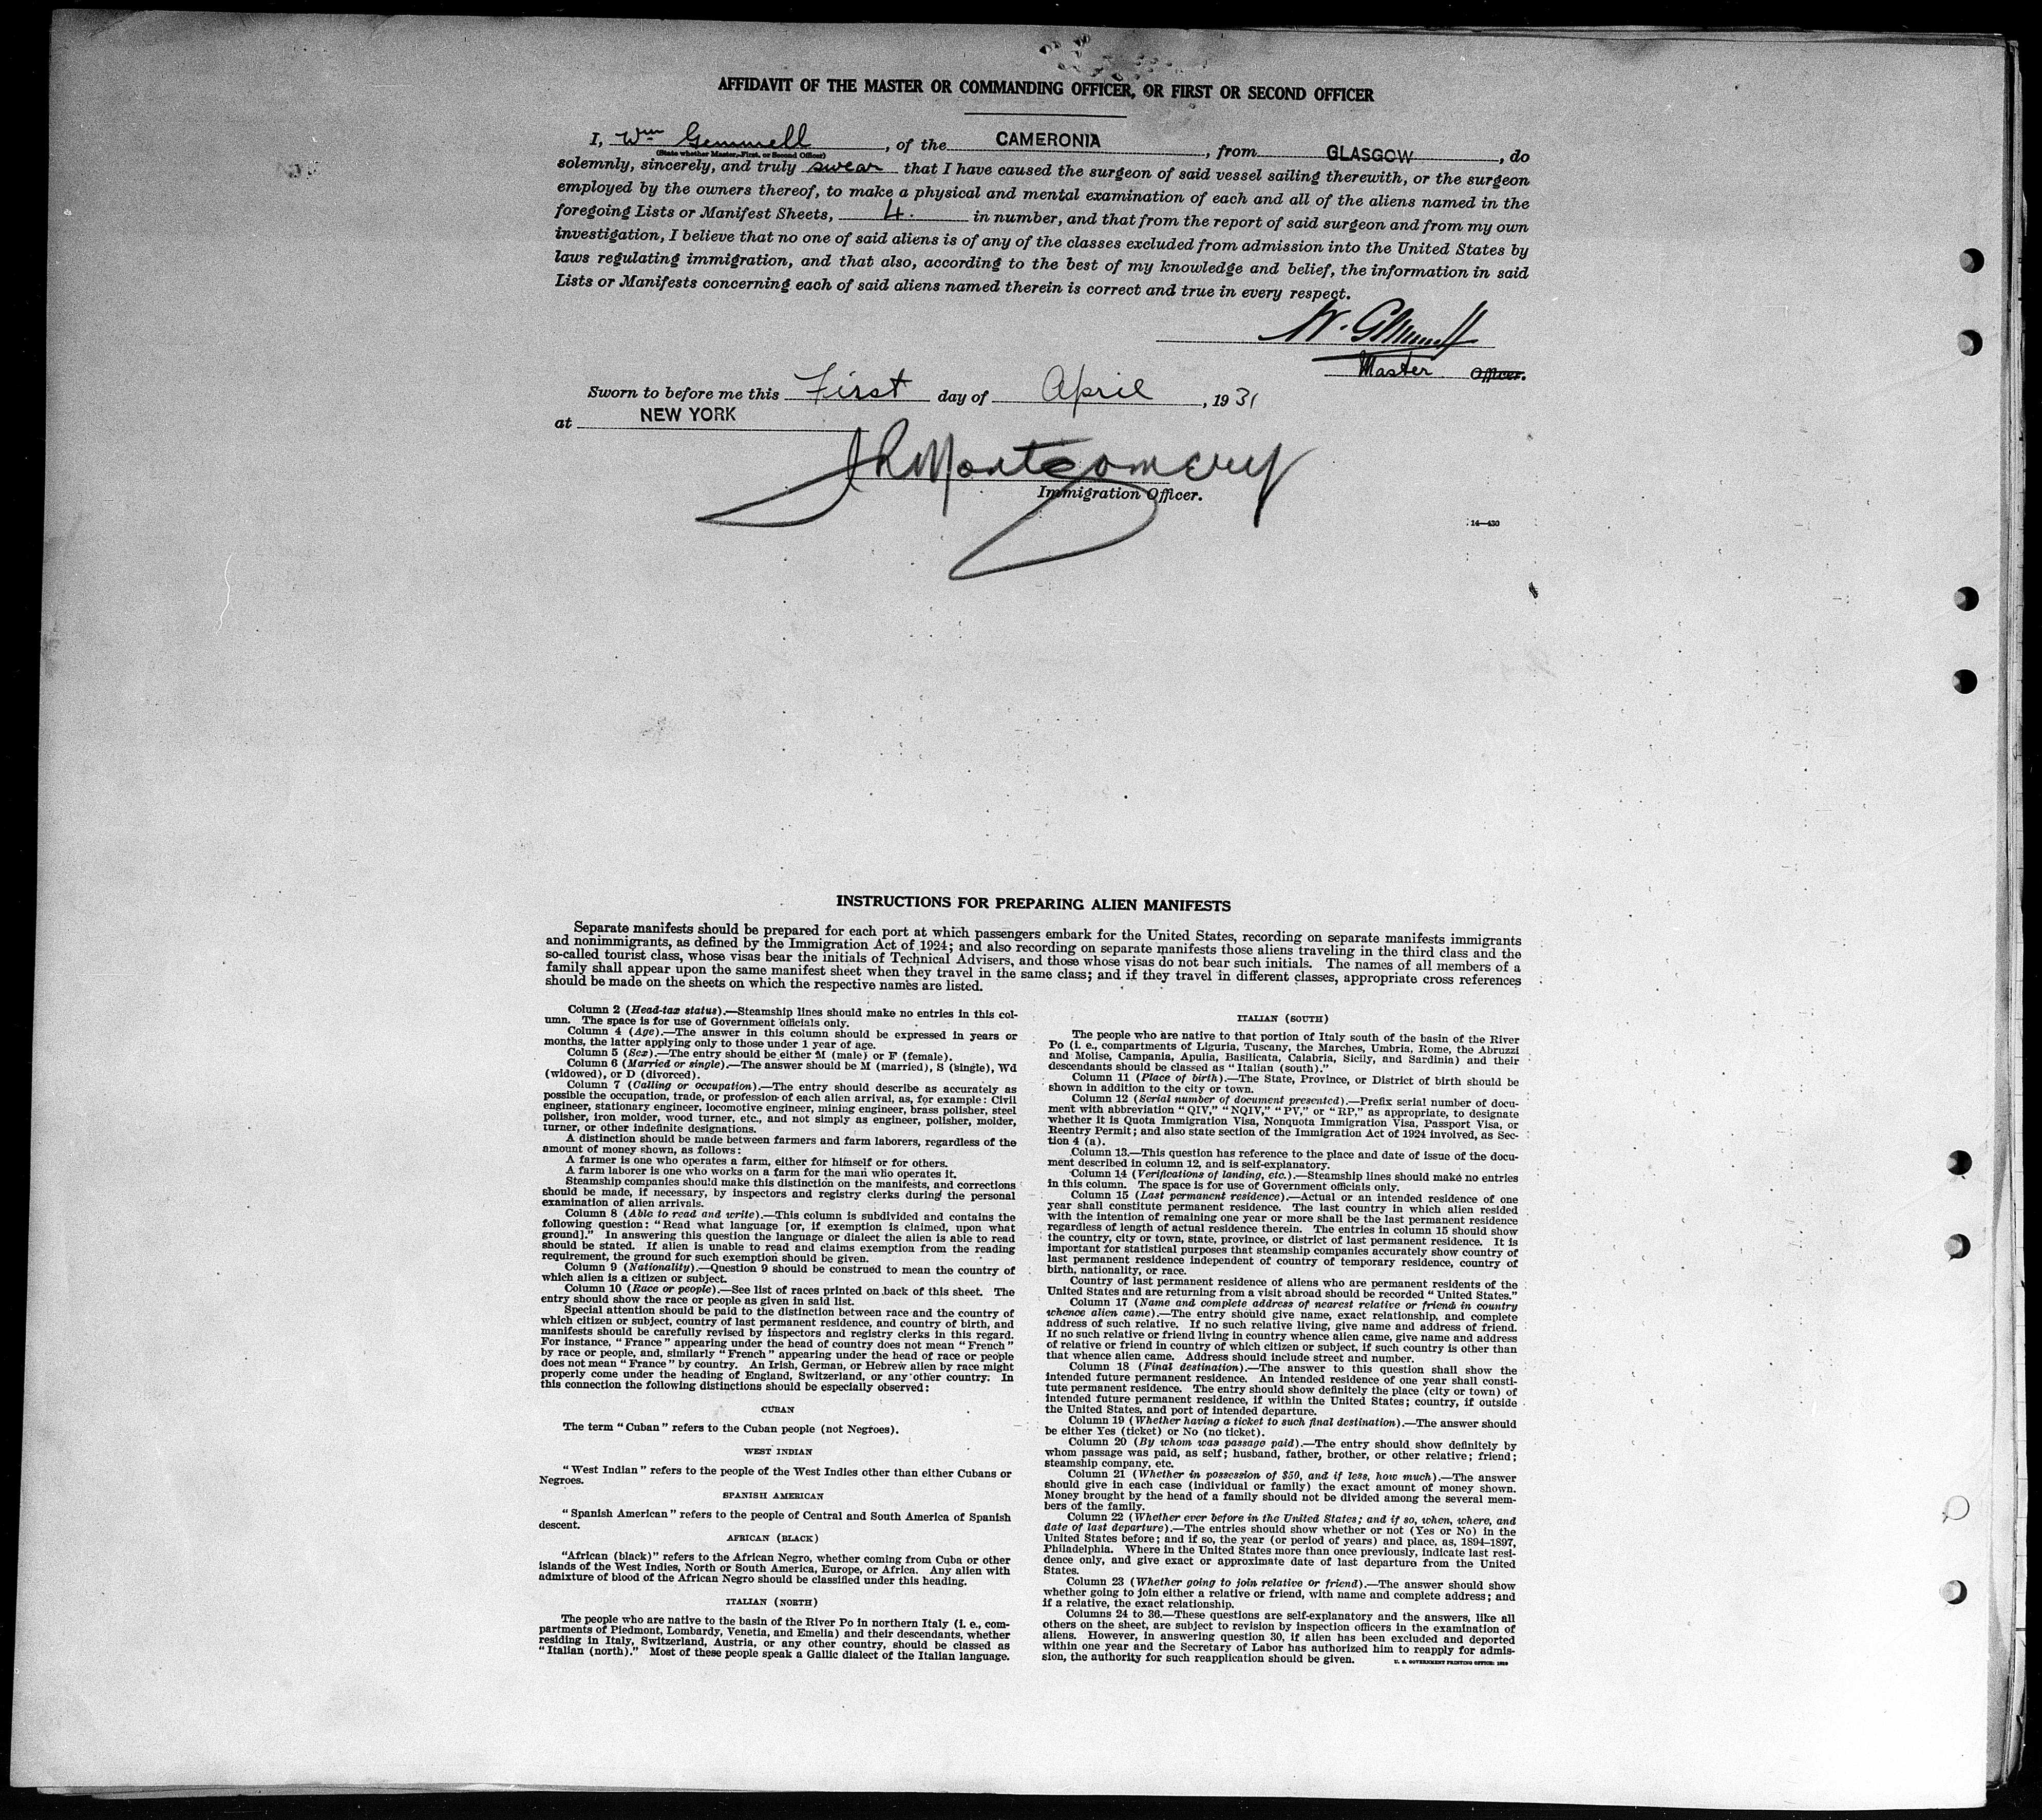 AFFIDAVIT OF THE MASTER OR COMMANDING OFFICER, OR FIRST OR SECOND OFFICER
I, Wm Gemmell, of the CAMERONIA, from GLASGOW, do
(State whether Master, First, or Second Officer)
solemnly, sincerely, and truly swear that I have caused the surgeon of said vessel sailing therewith, or the surgeon
employed by the owners thereof, to make a physical and mental examination of each and all of the aliens named in the
foregoing Lists or Manifest Sheets, 4. in number, and that from the report of said surgeon and from my own
investigation, I believe that no one of said aliens is of any of the classes excluded from admission into the United States by
laws regulating immigration, and that also, according to the best of my knowledge and belief, the information in said
Lists or Manifests concerning each of said aliens named therein is correct and true in every respect.
W. Gemmell
Master Officer.
Sworn to before me this First day of April, 1931
at NEW YORK
Montgomery
Immigration Officer.
14—430
INSTRUCTIONS FOR PREPARING ALIEN MANIFESTS
Separate manifests should be prepared for each port at which passengers embark for the United States, recording on separate manifests immigrants
and nonimmigrants, as defined by the Immigration Act of 1924; and also recording on separate manifests those aliens traveling in the third class and the
so-called tourist class, whose visas bear the initials of Technical Advisers, and those whose visas do not bear such initials. The names of all members of a
family shall appear upon the same manifest sheet when they travel in the same class; and if they travel in different classes, appropriate cross references
should be made on the sheets on which the respective names are listed.
Column 2 (Head-tax status).—Steamship lines should make no entries in this col-
umn. The space is for use of Government officials only.
Column 4 (Age).—The answer in this column should be expressed in years or
months, the latter applying only to those under 1 year of age.
Column 5 (Sex).—The entry should be either M (male) or F (female).
Column 6 (Married or single).—The answer should be M (married), S (single), Wd
(widowed), or D (divorced).
Column 7 (Calling or occupation).—The entry should describe as accurately as
possible the occupation, trade, or profession of each alien arrival, as, for example: Civil
engineer, stationary engineer, locomotive engineer, mining engineer, brass polisher, steel
polisher, iron molder, wood turner, etc., and not simply as engineer, polisher, molder,
turner, or other indefinite designations.
A distinction should be made between farmers and farm laborers, regardless of the
amount of money shown, as follows:
A farmer is one who operates a farm, either for himself or for others.
A farm laborer is one who works on a farm for the man who operates it.
Steamship companies should make this distinction on the manifests, and corrections
should be made, if necessary, by inspectors and registry clerks during the personal
examination of alien arrivals.
Column 8 (Able to read and write).—This column is subdivided and contains the
following question: "Read what language [or, if exemption is claimed, upon what
ground]." In answering this question the language or dialect the alien is able to read
should be stated. If alien is unable to read and claims exemption from the reading
requirement, the ground for such exemption should be given.
Column 9 (Nationality).—Question 9 should be construed to mean the country of
which alien is a citizen or subject.
Column 10 (Race or people).—See list of races printed on back of this sheet. The
entry should show the race or people as given in said list.
Special attention should be paid to the distinction between race and the country of
which citizen or subject, country of last permanent residence, and country of birth, and
manifests should be carefully revised by inspectors and registry clerks in this regard.
For instance, "France" appearing under the head of country does not mean "French"
by race or people, and, similarly "French" appearing under the head of race or people
does not mean "France" by country. An Irish, German, or Hebrew alien by race might
properly come under the heading of England, Switzerland, or any other country. In
this connection the following distinctions should be especially observed:
CUBAN
The term "Cuban" refers to the Cuban people (not Negroes).
WEST INDIAN
"West Indian" refers to the people of the West Indies other than either Cubans or
Negroes.
SPANISH AMERICAN
"Spanish American" refers to the people of Central and South America of Spanish
descent.
AFRICAN (BLACK)
"African (black)" refers to the African Negro, whether coming from Cuba or other
islands of the West Indies, North or South America, Europe, or Africa. Any alien with
admixture of blood of the African Negro should be classified under this heading.
ITALIAN (NORTH)
The people who are native to the basin of the River Po in northern Italy (i. e., com-
partments of Piedmont, Lombardy, Venetia, and Emelia) and their descendants, whether
residing in Italy, Switzerland, Austria, or any other country, should be classed as
"Italian (north)." Most of these people speak a Gallic dialect of the Italian language.
ITALIAN (SOUTH)
The people who are native to that portion of Italy south of the basin of the River
Po (i. e., compartments of Liguria, Tuscany, the Marches, Umbria, Rome, the Abruzzi
and Molise, Campania, Apulia, Basilicata, Calabria, Sicily, and Sardinia) and their
descendants should be classed as "Italian (south)."
Column 11 (Place of birth).—The State, Province, or District of birth should be
shown in addition to the city or town.
Column 12 (Serial number of document presented).—Prefix serial number of docu-
ment with abbreviation "QIV," "NQIV," "PV," or "RP," as appropriate, to designate
whether it is Quota Immigration Visa, Nonquota Immigration Visa, Passport Visa, or
Reentry Permit; and also state section of the Immigration Act of 1924 involved, as Sec-
tion 4 (a).
Column 13.—This question has reference to the place and date of issue of the docu-
ment described in column 12, and is self-explanatory.
Column 14 (Verifications of landing, etc.).—Steamship lines should make no entries
in this column. The space is for use of Government officials only.
Column 15 (Last permanent residence).—Actual or an intended residence of one
year shall constitute permanent residence. The last country in which alien resided
with the intention of remaining one year or more shall be the last permanent residence
regardless of length of actual residence therein. The entries in column 15 should show
the country, city or town, state, province, or district of last permanent residence. It is
important for statistical purposes that steamship companies accurately show country of
last permanent residence independent of country of temporary residence, country of
birth, nationality, or race.
Country of last permanent residence of aliens who are permanent residents of the
United States and are returning from a visit abroad should be recorded "United States."
Column 17 (Name and complete address of nearest relative or friend in country
whence alien came).—The entry should give name, exact relationship, and complete
address of such relative. If no such relative living, give name and address of friend.
If no such relative or friend living in country whence alien came, give name and address
of relative or friend in country of which citizen or subject, if such country is other than
that whence alien came. Address should include street and number.
Column 18 (Final destination).—The answer to this question shall show the
intended future permanent residence. An intended residence of one year shall consti-
tute permanent residence. The entry should show definitely the place (city or town) of
intended future permanent residence, if within the United States; country, if outside
the United States, and port of intended departure.
Column 19 (Whether having a ticket to such final destination).—The answer should
be either Yes (ticket) or No (no ticket).
Column 20 (By whom was passage paid).—The entry should show definitely by
whom passage was paid, as self; husband, father, brother, or other relative; friend;
steamship company, etc.
Column 21 (Whether in possession of $50, and if less, how much).—The answer
should give in each case (individual or family) the exact amount of money shown.
Money brought by the head of a family should not be divided among the several mem-
bers of the family.
Column 22 (Whether ever before in the United States; and if so, when, where, and
date of last departure).—The entries should show whether or not (Yes or No) in the
United States before; and if so, the year (or period of years) and place, as, 1894–1897,
Philadelphia. Where in the United States more than once previously, indicate last resi-
dence only, and give exact or approximate date of last departure from the United
States.
Column 23 (Whether going to join relative or friend).—The answer should show
whether going to join either a relative or friend, with name and complete address; and
if a relative, the exact relationship.
Columns 24 to 36.—These questions are self-explanatory and the answers, like all
others on the sheet, are subject to revision by inspection officers in the examination of
aliens. However, in answering question 30, if alien has been excluded and deported
within one year and the Secretary of Labor has authorized him to reapply for admis-
sion, the authority for such reapplication should be given.
U. S. GOVERNMENT PRINTING OFFICE: